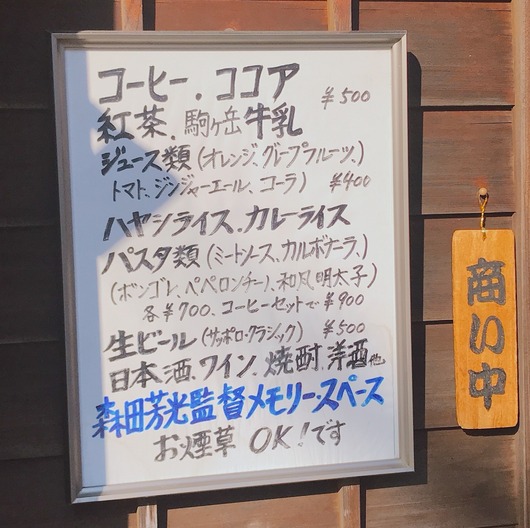 コーヒー．ココア ¥500
紅茶．駒ヶ岳牛乳
ジュース類（オレンジ、グレープフルーツ、）
トマト、ジンジャーエール、コーラ） ¥400
ハヤシライス、カレーライス
パスタ類（ミートソース、カルボナーラ、）
（ボンゴレ、ペペロンチーノ、和風明太子）
各¥700、コーヒーセットで¥900
生ビール（サッポロ・クラシック） ¥500
日本酒、ワイン、焼酎、洋酒他
森田芳光監督メモリー・スペース
お煙草 OK！です
商い中